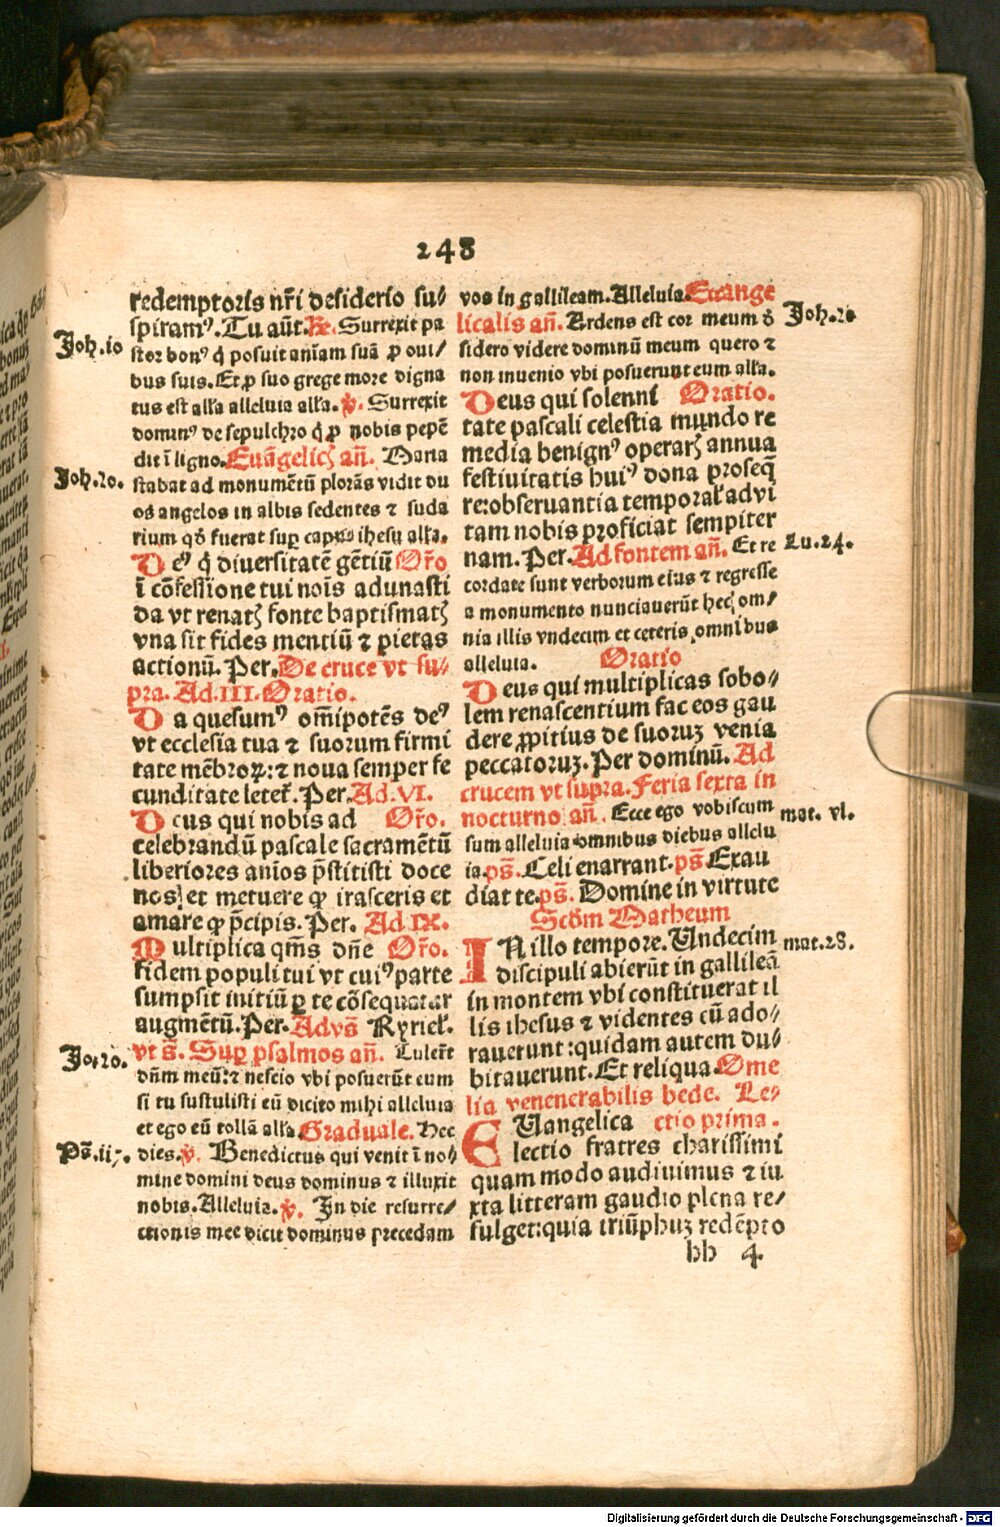 248
redemptoris nr̄i desiderio su⸗
spiramꝰ. Tu aūt. R̄. Surrexit pa
Joh. 10
stor bonꝰ q̇ posuit aīam suā ꝓ oui⸗
bus suis. Et ꝓ suo grege more digna
tus est all'a alleluia all'a. v̄. Surrexit
dominꝰ de sepulchro q̇ ꝓ nobis pepē
dit ī ligno. Euāgelicꝭ an̄. Maria
Joh. 20.
stabat ad monumētū plorās vidit du
os angelos in albis sedentes ⁊ suda
rium qḋ fuerat suꝑ caput ihesu all'a.
Deꝰ q̇ diversitatē gētiū Or̄o
ī cōfessione tui nois̄ adunasti
da vt renatꝭ fonte baptismatꝭ
vna sit fides mentiū ⁊ pietas
actionū. Per. De cruce vt su⸗
pra. Ad. III. Oratio.
Da quesumꝰ om̄ipotēs deꝰ
vt ecclesia tua ⁊ suorum firmi
tate mēbroꝝ: ⁊ noua semper fe
cunditate letet̄. Per. Ad. VI.
Deus qui nobis ad Or̄o.
celebrandū pascale sacramētū
liberiores anīos p̄stitisti doce
nos: et metuere qͥ irasceris et
amare qͥ p̄cipis. Per. Ad IX.
Multiplica qm̄s dn̄e Or̄o.
fidem populi tui vt cuiꝰ parte
sumpsit initiū ꝑ te cōsequatur
augmētū. Per. Ad vs̄ Kyriel̄.
vt s̄. Suꝑ psalmos an̄. Tuler̄t
Jo. 20.
dn̄m meū: ⁊ nescio vbi posuerūt eum
si tu sustulisti eū dicito mihi alleluia
et ego eū tollā all'a. Graduale. Hec
Ps̄. ii7.
dies. v̄. Benedictus qui venit ī no⸗
mine domini deus dominus ⁊ illuxit
nobis. Alleluia. v̄. In die resurre⸗
ctionis mee dicit dominus precedam
vos in gallileam. Alleluia. Euange
licalis an̄. Ardens est cor meum ḋ
Joh. 20
sidero videre dominū meum quero ⁊
non inuenio vbi posuerunt eum all'a.
Deus qui solenni Oratio.
tate pascali celestia mundo re
media benignꝰ operarꝭ annua
festiuitatis huiꝰ dona proseq̄
re: observantia temporal̄ advi
tam nobis proficiat sempiter
nam. Per. Ad fontem an̄. Et re
Lu. 24.
cordate sunt verborum eius ⁊ regresse
a monumento nunciauerūt hec om⸗
nia illis vndecim et ceteris omnibus
alleluia. Oratio
Deus qui multiplicas sobo⸗
lem renascentium fac eos gau
dere ꝓpitius de suoruꝫ venia
peccatoruꝫ. Per dominū. Ad
crucem vt supra. Feria sexta in
nocturno an̄. Ecce ego vobiscum
mat. vl.
sum alleluia omnibus diebus allelu
ia. ps̄. Celi enarrant. ps̄. Exau
diat te. ps̄. Domine in virtute
Scḋm Matheum
IN illo tempore. Undecim
mat. 28.
discipuli abierūt in gallileā
in montem vbi constituerat il
lis ihesus ⁊ videntes cū ado⸗
rauerunt: quidam autem du⸗
bitauerunt. Et reliqua. Ome
lia venenerabilis bede. Le⸗
EUangelica ctio prima.
lectio fratres charissimi
quam modo audiuimus ⁊ iu
xta litteram gaudio plena re⸗
fulget: quia triūphuꝫ redēpto
hh 4
Digitalisierung gefördert durch die Deutsche Forschungsgemeinschaft - DFG